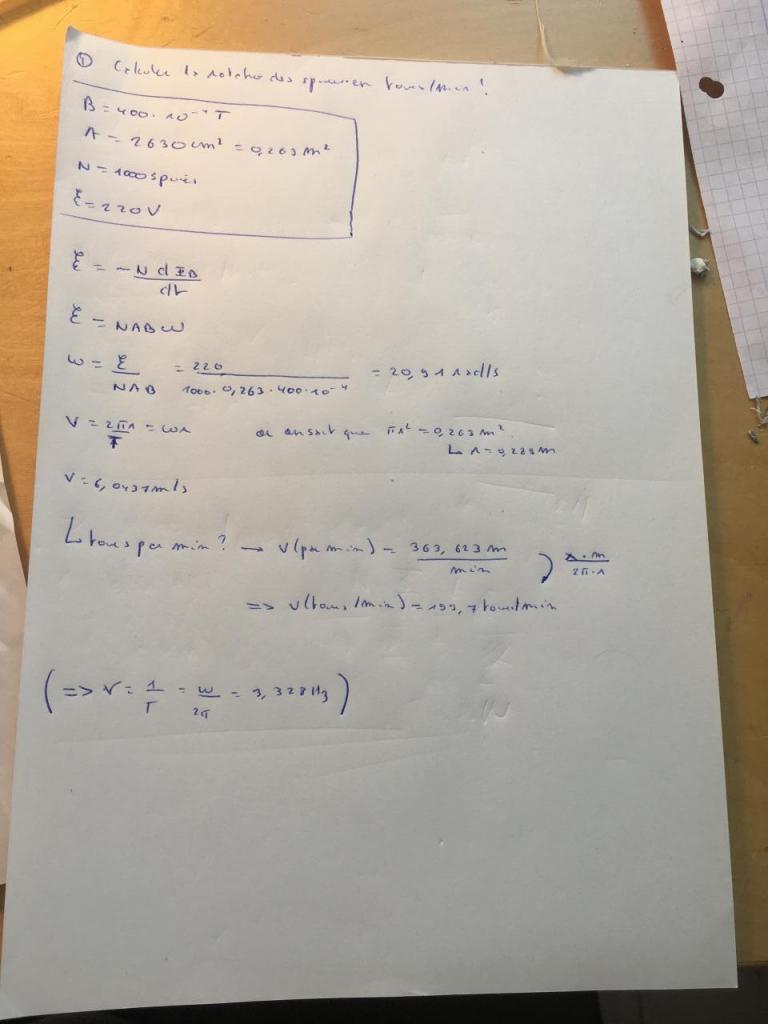 ① Calculer la rotation des spires en tours/min !
B = 400 · 10⁻⁴ T
A = 2630 cm² = 0,263 m²
N = 1000 spires
ξ = 220 V
ξ = - N dΦB / dt
ξ = NABω
ω = ξ / NAB = 220 / 1000 · 0,263 · 400 · 10⁻⁴ = 20,91 rad/s
V = 2πr / T = ωr or on sait que πr² = 0,263 m²
↳ r = 0,289 m
V = 6,0437 m/s
↳ tours par min ? → V (par min) = 363,623 m / min ) x · m / 2π · r
=> V (tours/min) = 199,7 tours/min
( => ν = 1 / T = ω / 2π = 3,328 Hz )